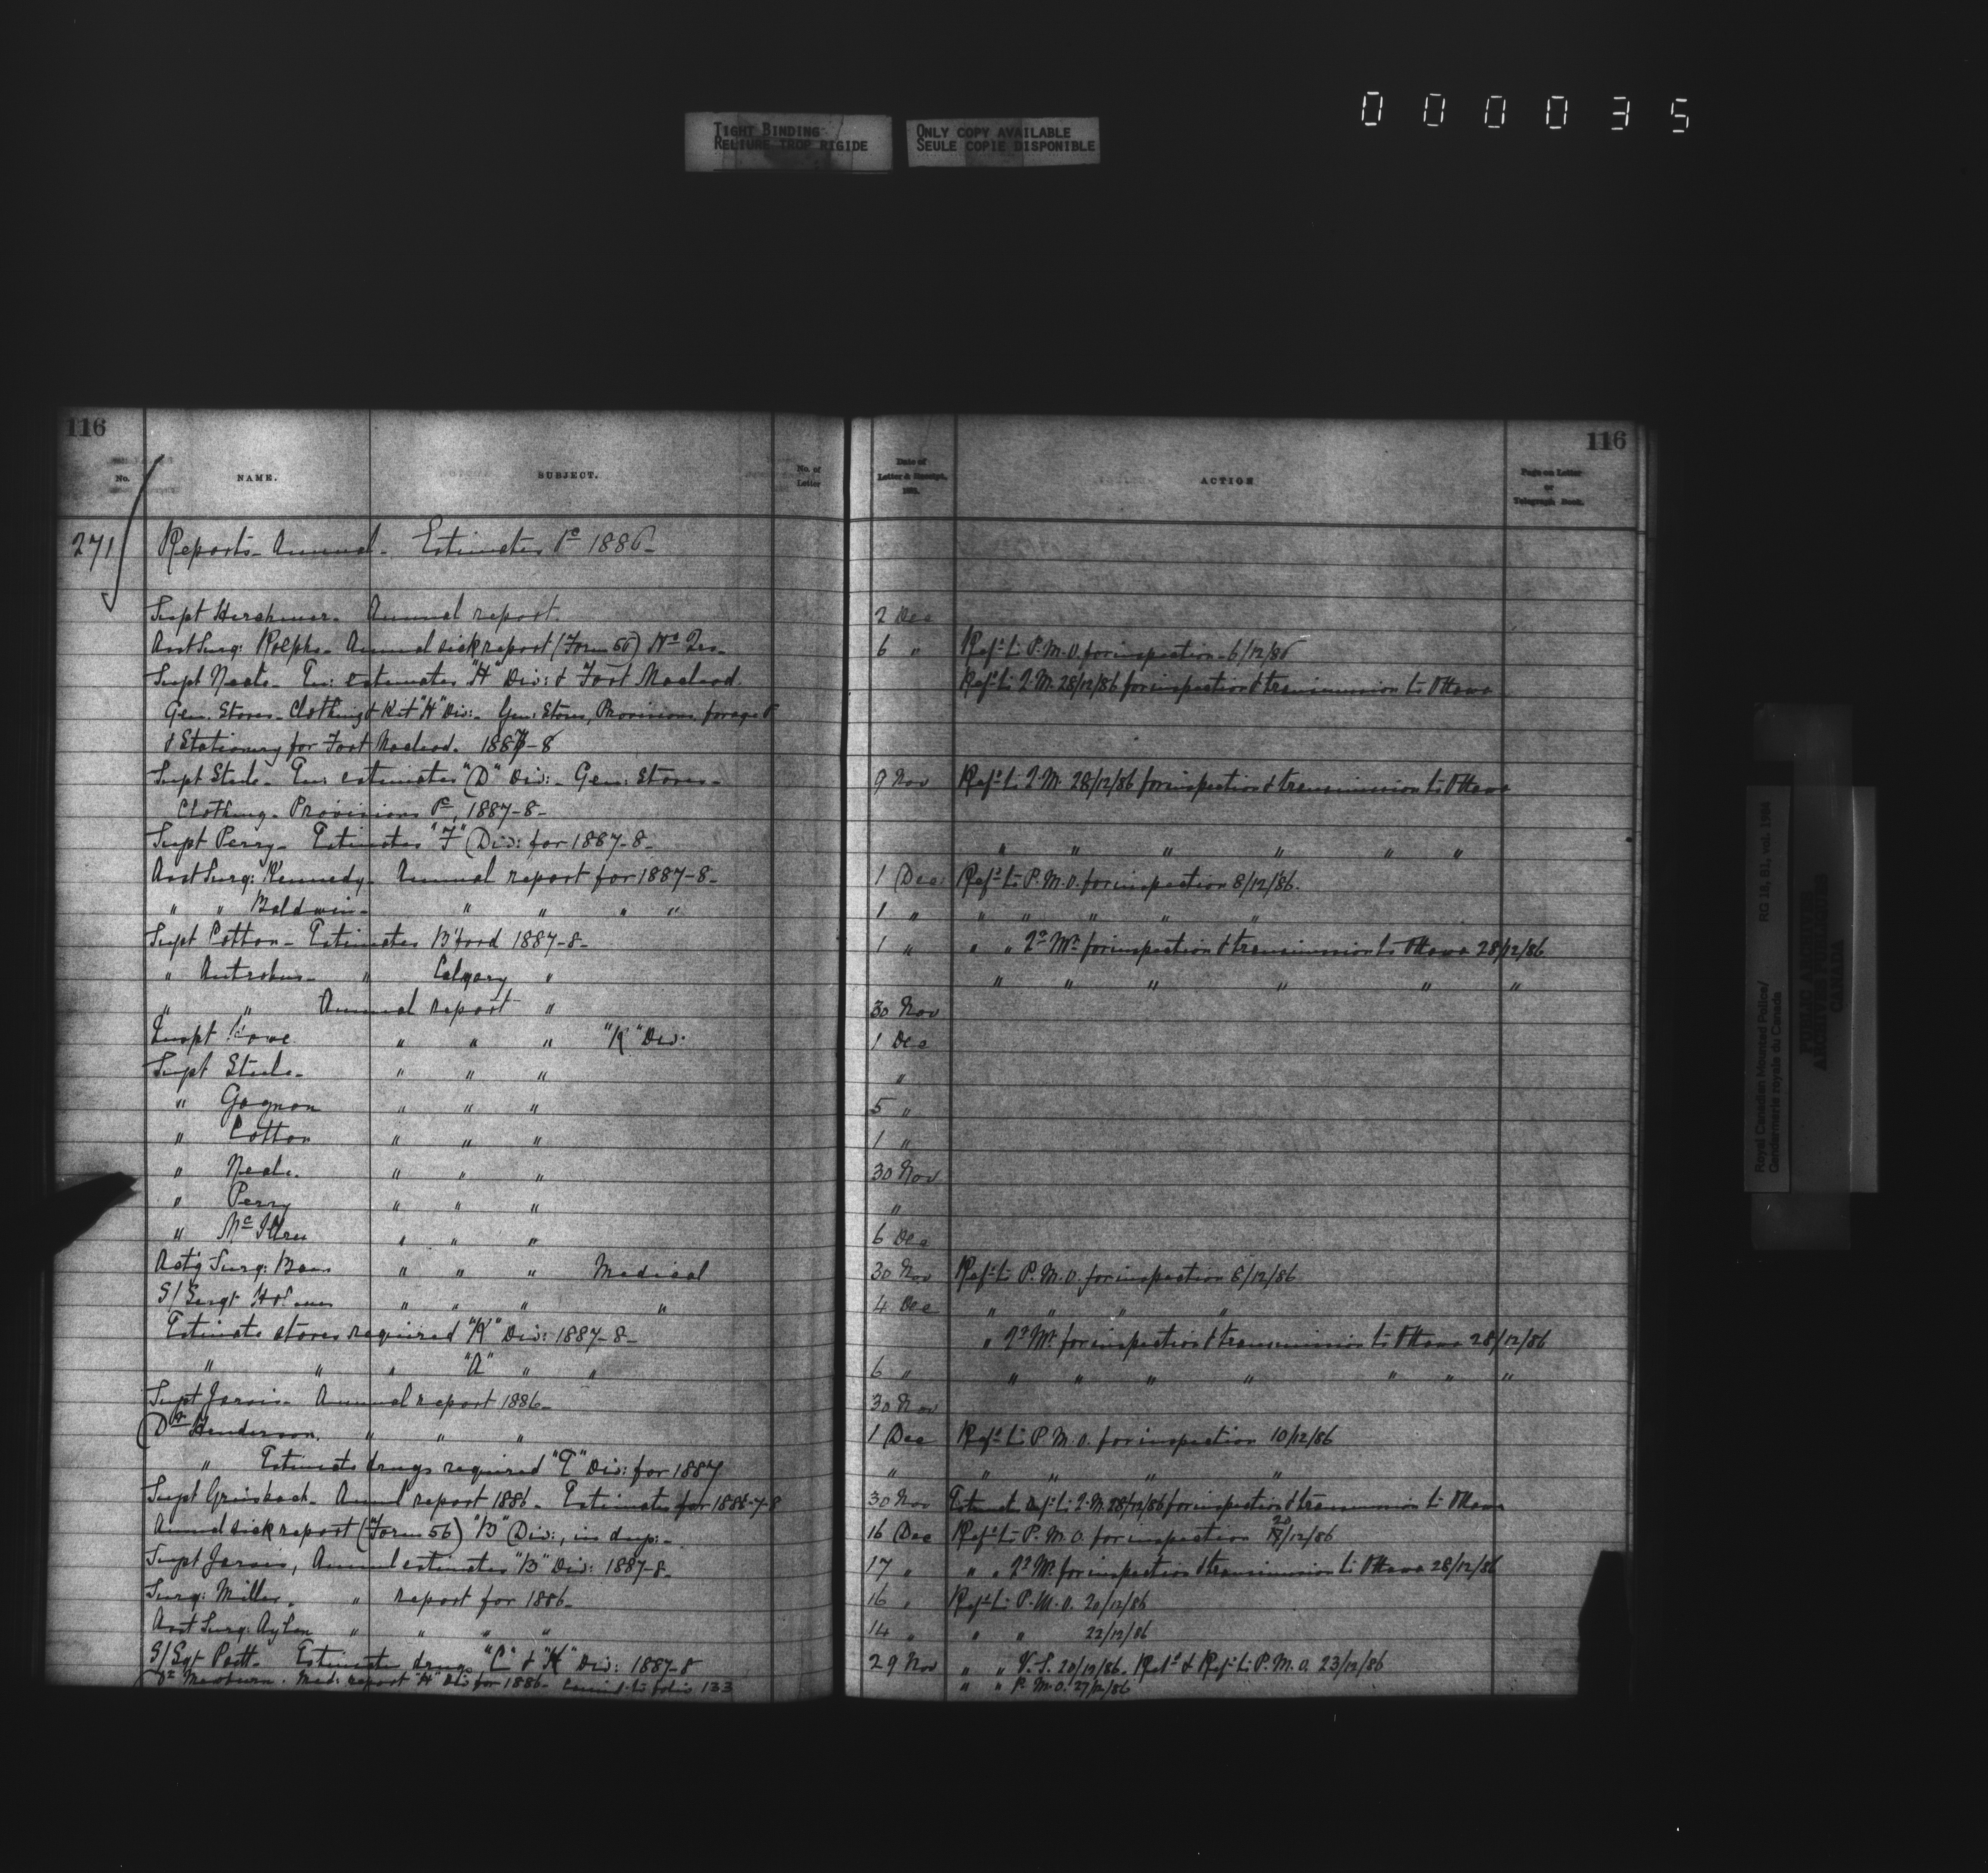 000035
TIGHT BINDING
RELIURE TROP RIGIDE
ONLY COPY AVAILABLE
SEULE COPIE DISPONIBLE
116
No.
NAME.
SUBJECT.
No. of
Letter
271 Reports - Annual - Estimates &c 1886 -
Supt Herchmer - Annual report.
Asst Surg: Rolph - Annual sick report (Form 56) Hd Qrs -
Supt Neale - Tri: estimates "H" Div: & Fort Macleod.
Gen. Stores - Clothing & Kit "H" Div: - Gen: Stores, Provisions, forage
& Stationery for Fort Macleod. 1887-8
Supt Steele - Tri: estimates "D" Div: - Gen: Stores -
Clothing - Provisions &c, 1887-8 -
Supt Perry - Estimates "F" Div: for 1887-8 -
Asst Surg: Kennedy - Annual report for 1887-8 -
" " Baldwin - " " " "
Supt Cotton - Estimates B'ford 1887-8 -
" Antrobus - " Calgary "
" " Annual report "
Inspt " " " "K" Div.
Supt Steele - " " "
" Gagnon " " "
" Cotton " " "
" Neale. " " "
" Perry " " "
" McIllree " " "
Act'g Surg: " " " Medical
S/Sergt " " " "
Estimate stores required "K" Div: 1887-8 -
" " " "A" " "
Supt Jarvis - Annual report 1886 -
Dr Henderson. " " "
" Estimate drugs required "E" Div: for 1887
Supt Griesbach - Annul report 1886 - Estimates for 1886-7-8
Annual sick report (Form 56) "B" Div:, in dup: -
Supt Jarvis, Annual estimates "B" Div: 1887-8 -
Surg: Miller. " report for 1886 -
Asst Surg: Aylen " " " "
S/Sgt Pett - Estimate drugs "C" & "K" Div: 1887-8
Dr Mewburn. Med: report "H" Div for 1886 - to folio 133
116
Date of
Letter & Receipt,
188
ACTION
Page on Letter
or
Telegraph Book.
2 Dec
6 " Refd to P.M.O. for inspection - 6/12/86
Refd to Q.M. 28/12/86 for inspection & transmission to Ottawa
9 Nov Refd to Q.M. 28/12/86 for inspection & transmission to Ottawa
" " " " " "
1 Dec Refd to P.M.O. for inspection 8/12/86.
1 " " " " " "
1 " " " Qr Mr for inspection & transmission to Ottawa 28/12/86
" " " " " "
30 Nov
1 Dec
"
5 "
1 "
30 Nov
"
6 Dec
30 Nov Refd to P.M.O. for inspection 8/12/86
4 Dec " " " "
" Qr Mr for inspection & transmission to Ottawa 28/12/86
6 " " " " " " " "
30 Nov
1 Dec Refd to P.M.O. for inspection 10/12/86
" " " " "
30 Nov Estimate Refd to Q.M. 28/12/86 for inspection & transmission to Ottawa
16 Dec Refd to P.M.O. for inspection 20/12/86
17 " " " Qr Mr for inspection & transmission to Ottawa 28/12/86
16 " Refd to P.M.O. 20/12/86
14 " " " 22/12/86
29 Nov " " V.S. 20/12/86. Retd & Refd to P.M.O. 23/12/86
" " P.M.O. 27/12/86
Royal Canadian Mounted Police/
Gendarmerie royale du Canada
RG 18, B1, vol. 1984
PUBLIC ARCHIVES
ARCHIVES PUBLIQUES
CANADA